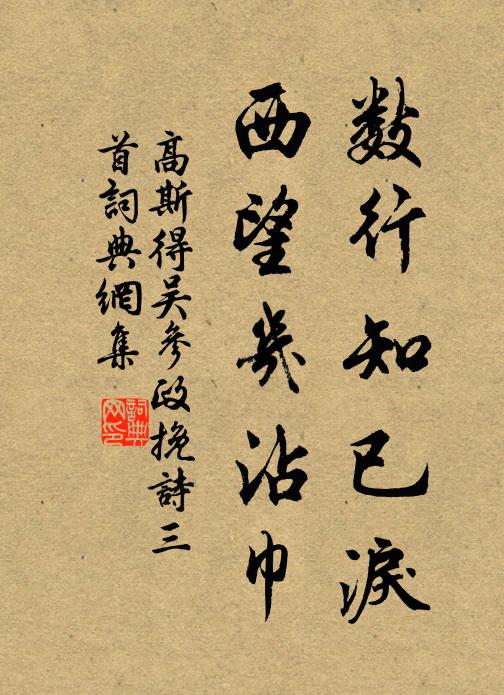 數行知已淚
西望幾沾巾
高斯得吴參政挽詩三
首詞典網集
詞典
网印